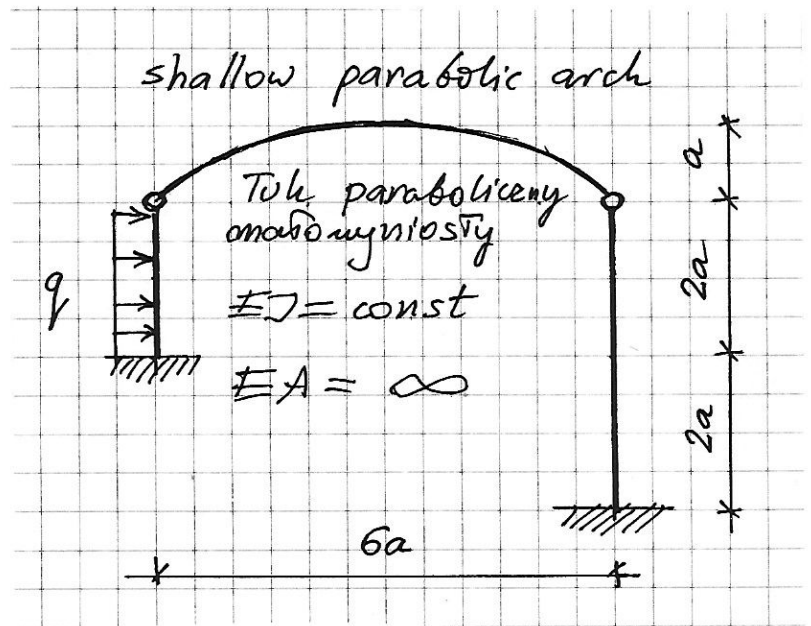 shallow parabolic arch
Łuk paraboliczny
małowyniosły
EJ = const
EA = ∞
q
a
2a
2a
6a